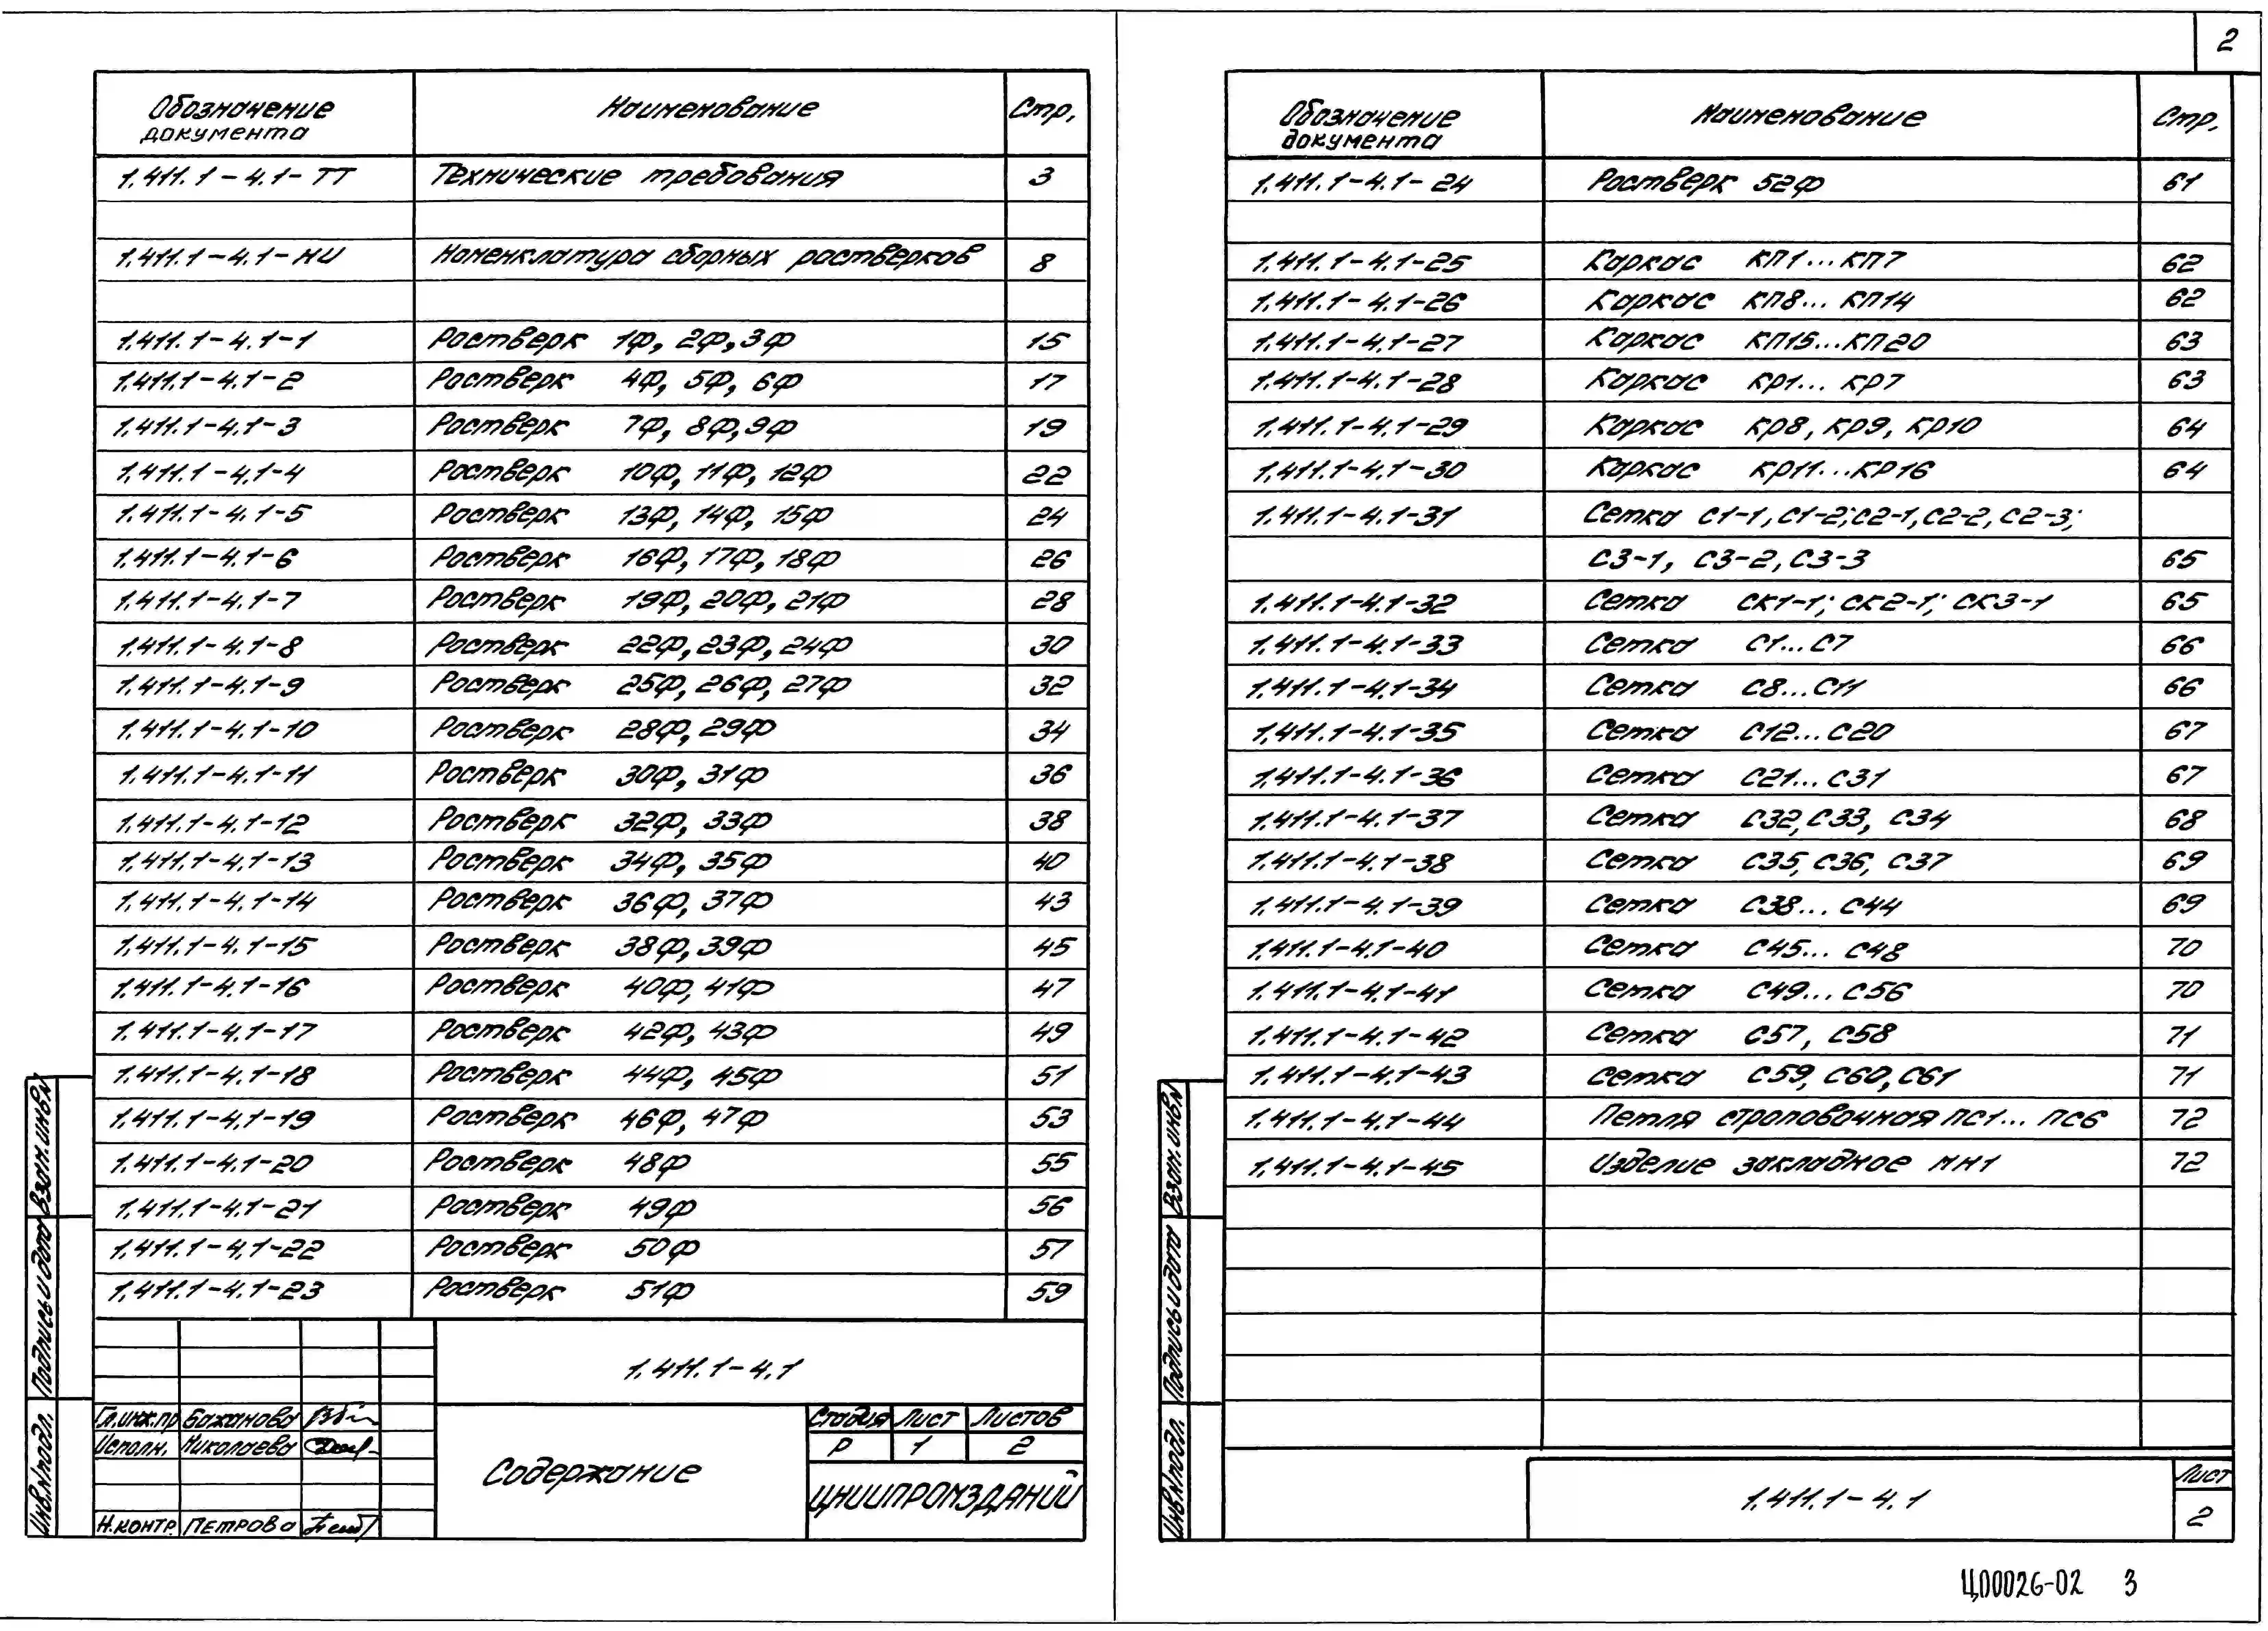 Обозначение документа Наименование Стр.
1.411.1-4.1-ТТ Технические требования 3
1.411.1-4.1-НИ Номенклатура сборных ростверков 8
1.411.1-4.1-1 Ростверк 1Ф, 2Ф, 3Ф 15
1.411.1-4.1-2 Ростверк 4Ф, 5Ф, 6Ф 17
1.411.1-4.1-3 Ростверк 7Ф, 8Ф, 9Ф 19
1.411.1-4.1-4 Ростверк 10Ф, 11Ф, 12Ф 22
1.411.1-4.1-5 Ростверк 13Ф, 14Ф, 15Ф 24
1.411.1-4.1-6 Ростверк 16Ф, 17Ф, 18Ф 26
1.411.1-4.1-7 Ростверк 19Ф, 20Ф, 21Ф 28
1.411.1-4.1-8 Ростверк 22Ф, 23Ф, 24Ф 30
1.411.1-4.1-9 Ростверк 25Ф, 26Ф, 27Ф 32
1.411.1-4.1-10 Ростверк 28Ф, 29Ф 34
1.411.1-4.1-11 Ростверк 30Ф, 31Ф 36
1.411.1-4.1-12 Ростверк 32Ф, 33Ф 38
1.411.1-4.1-13 Ростверк 34Ф, 35Ф 40
1.411.1-4.1-14 Ростверк 36Ф, 37Ф 43
1.411.1-4.1-15 Ростверк 38Ф, 39Ф 45
1.411.1-4.1-16 Ростверк 40Ф, 41Ф 47
1.411.1-4.1-17 Ростверк 42Ф, 43Ф 49
1.411.1-4.1-18 Ростверк 44Ф, 45Ф 51
1.411.1-4.1-19 Ростверк 46Ф, 47Ф 53
1.411.1-4.1-20 Ростверк 48Ф 55
1.411.1-4.1-21 Ростверк 49Ф 56
1.411.1-4.1-22 Ростверк 50Ф 57
1.411.1-4.1-23 Ростверк 51Ф 59
1.411.1-4.1
Гл.инж.пр Бажанова
Исполн. Николаева
Н.контр. Петрова
Содержание
Стадия Лист Листов
Р 1 2
ЦНИИПРОМЗДАНИЙ
Взам.инв.№
Подпись и дата
Инв.№подл.
2
Обозначение документа Наименование Стр.
1.411.1-4.1-24 Ростверк 52Ф 61
1.411.1-4.1-25 Каркас КП1...КП7 62
1.411.1-4.1-26 Каркас КП8...КП14 62
1.411.1-4.1-27 Каркас КП15...КП20 63
1.411.1-4.1-28 Каркас КР1...КР7 63
1.411.1-4.1-29 Каркас КР8, КР9, КР10 64
1.411.1-4.1-30 Каркас КР11...КР16 64
1.411.1-4.1-31 Сетка С1-1, С1-2; С2-1, С2-2, С2-3;
С3-1, С3-2, С3-3 65
1.411.1-4.1-32 Сетка СК1-1; СК2-1; СК3-1 65
1.411.1-4.1-33 Сетка С1...С7 66
1.411.1-4.1-34 Сетка С8...С11 66
1.411.1-4.1-35 Сетка С12...С20 67
1.411.1-4.1-36 Сетка С21...С31 67
1.411.1-4.1-37 Сетка С32, С33, С34 68
1.411.1-4.1-38 Сетка С35, С36, С37 69
1.411.1-4.1-39 Сетка С38...С44 69
1.411.1-4.1-40 Сетка С45...С48 70
1.411.1-4.1-41 Сетка С49...С56 70
1.411.1-4.1-42 Сетка С57, С58 71
1.411.1-4.1-43 Сетка С59, С60, С61 71
1.411.1-4.1-44 Петля строповочная ПС1...ПС6 72
1.411.1-4.1-45 Изделие закладное МН1 72
Взам.инв.№
Подпись и дата
Инв.№подл.
1.411.1-4.1
Лист
2
Ц00026-02 3